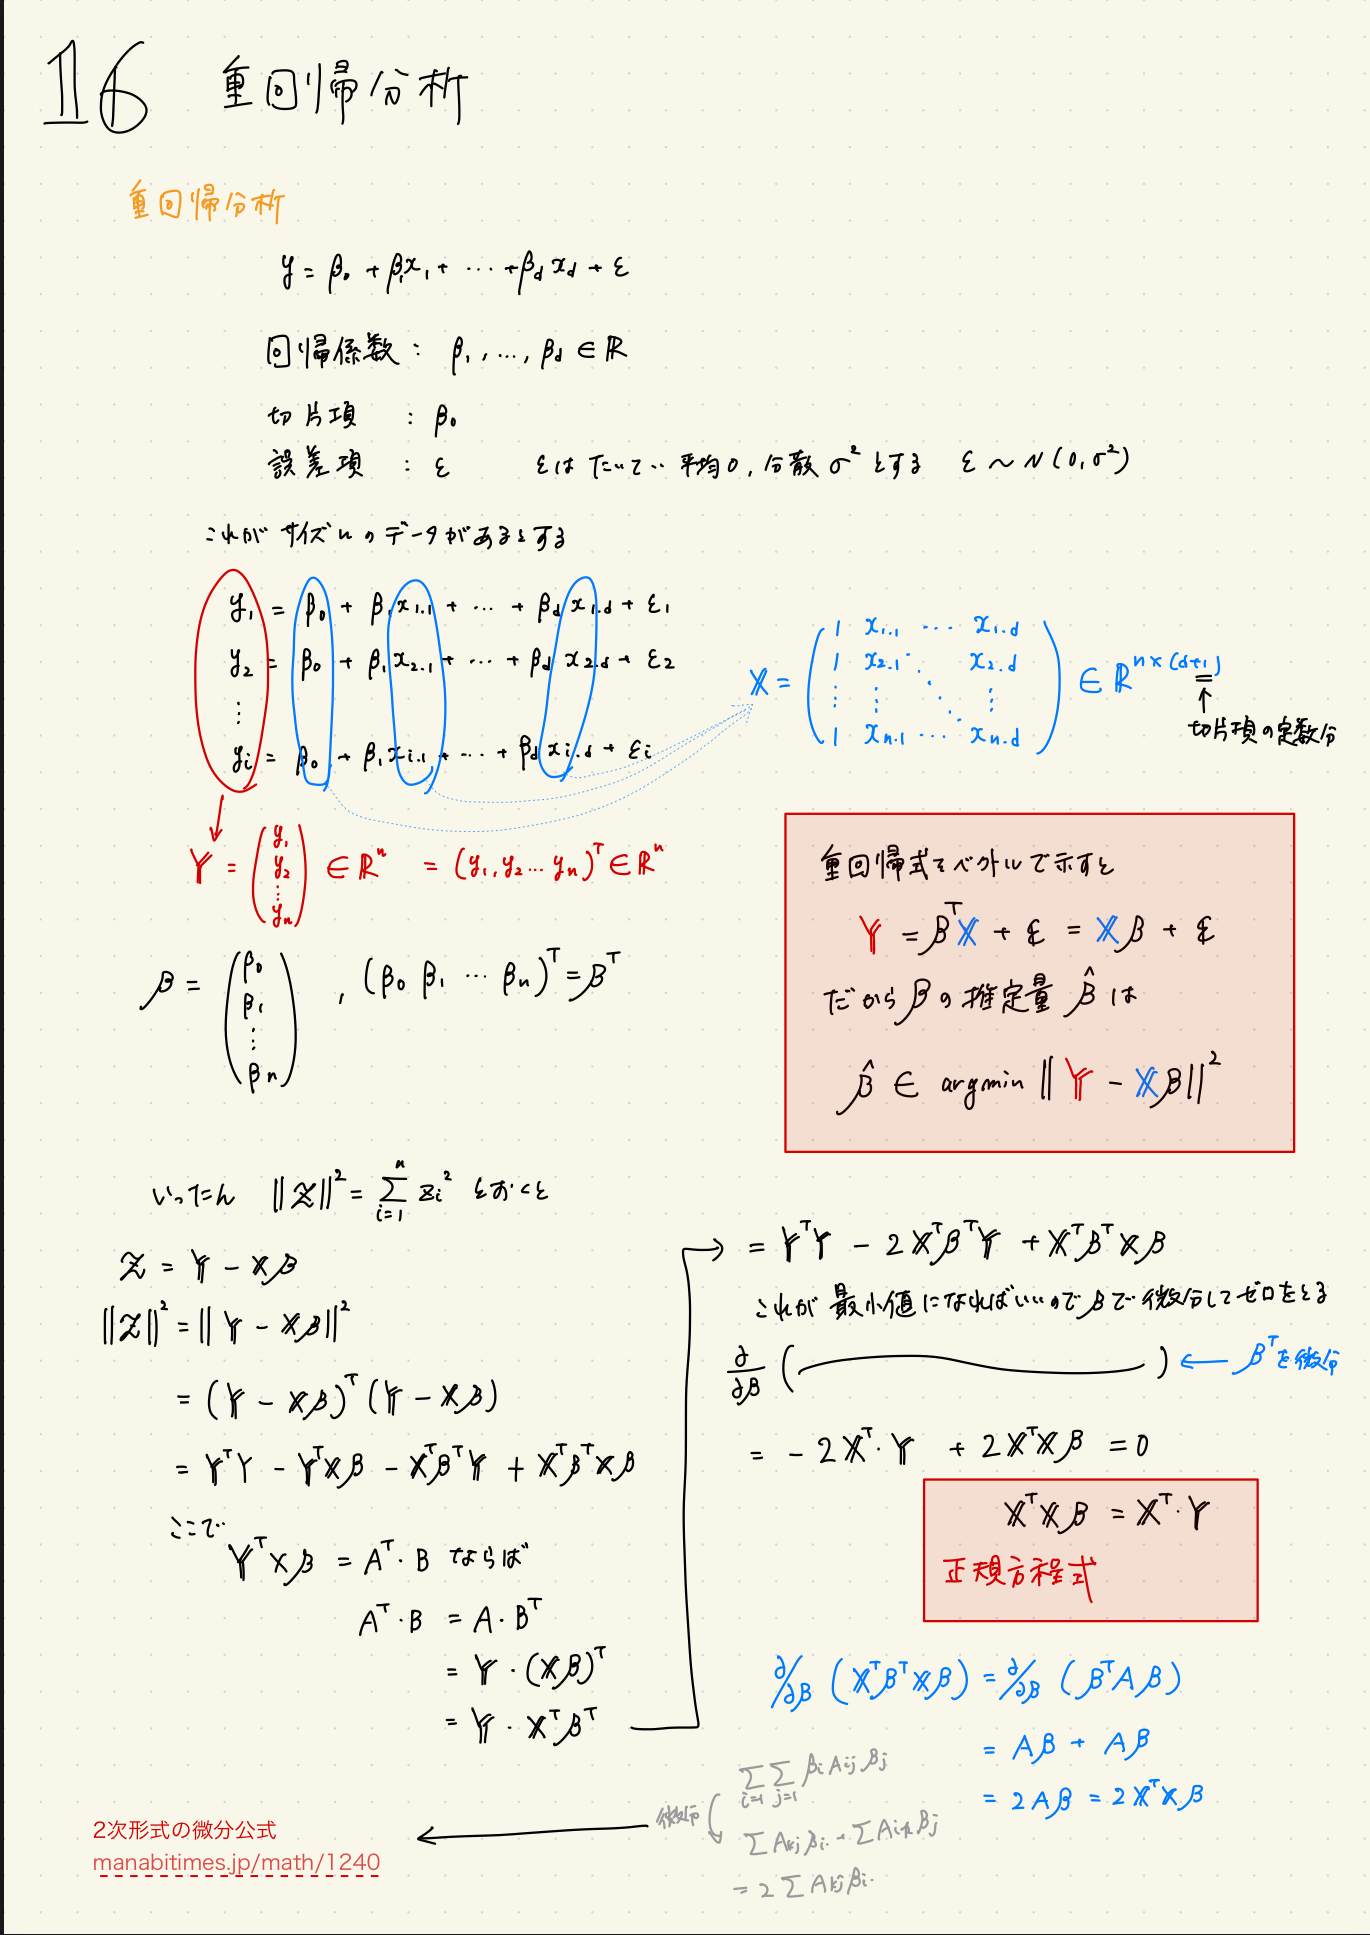 16 重回帰分析
重回帰分析
y = β₀ + β₁x₁ + ⋯ + β_d x_d + ε
回帰係数 : β₁, …, β_d ∈ ℝ
切片項 : β₀
誤差項 : ε εはたいてい平均0, 分散σ²とする ε ~ N(0, σ²)
これがサイズnのデータがあるとする
y₁ = β₀ + β₁x₁.₁ + ⋯ + β_d x₁.d + ε₁
y₂ = β₀ + β₁x₂.₁ + ⋯ + β_d x₂.d + ε₂
⋮
yᵢ = β₀ + β₁xᵢ.₁ + ⋯ + β_d xᵢ.d + εᵢ
𝕏 = (1 x₁.₁ ⋯ x₁.d
1 x₂.₁ ⋱ x₂.d
⋮ ⋮ ⋱ ⋮
1 xₙ.₁ ⋯ xₙ.d) ∈ ℝ^{n×(d+1)}
↑
切片項の定数分
𝕐 = (y₁ y₂ ⋮ yₙ) ∈ ℝⁿ = (y₁, y₂ ⋯ yₙ)ᵀ ∈ ℝⁿ
β = (β₀ β₁ ⋮ βₙ) , (β₀ β₁ ⋯ βₙ)ᵀ = βᵀ
重回帰式をベクトルで示すと
𝕐 = βᵀ𝕏 + ε = 𝕏β + ε
だからβの推定量 β̂ は
β̂ ∈ argmin ‖𝕐 - 𝕏β‖²
いったん ‖Z‖² = Σ_{i=1}^{n} zᵢ² とおくと
Z = 𝕐 - 𝕏β
‖Z‖² = ‖𝕐 - 𝕏β‖²
= (𝕐 - 𝕏β)ᵀ(𝕐 - 𝕏β)
= 𝕐ᵀY - 𝕐ᵀ𝕏β - 𝕏ᵀβᵀ𝕐 + 𝕏ᵀβᵀ𝕏β
ここで
𝕐ᵀXβ = Aᵀ·B ならば
Aᵀ·B = A·Bᵀ
= 𝕐·(𝕏β)ᵀ
= 𝕐·𝕏ᵀβᵀ
= 𝕐ᵀ𝕐 - 2𝕏ᵀβᵀ𝕐 + 𝕏ᵀβᵀ𝕏β
これが最小値になればいいのでβで微分してゼロをとる
∂/∂β ( ) ← βᵀを微分
= -2𝕏ᵀ·𝕐 + 2𝕏ᵀ𝕏β = 0
𝕏ᵀ𝕏β = 𝕏ᵀ·𝕐
正規方程式
∂/∂β (𝕏ᵀβᵀ𝕏β) = ∂/∂β (βᵀAβ)
= Aβ + Aβ
= 2Aβ = 2𝕏ᵀ𝕏β
Σ_{i=1} Σ_{j=1} βᵢ Aᵢⱼ βⱼ
微分
Σ Aₖⱼ βᵢ + Σ Aᵢₖ βⱼ
= 2 Σ Aₖⱼ βᵢ
2次形式の微分公式
manabitimes.jp/math/1240